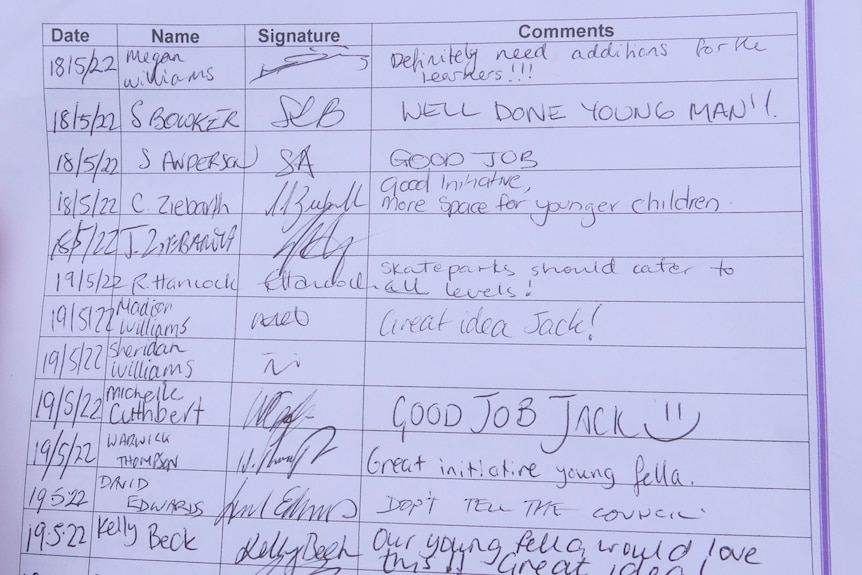 Date Name Signature Comments
18/5/22 Megan Williams Definitely need additions for the
Learners!!!
18/5/22 S BOWKER SLB WELL DONE YOUNG MAN!!.
18/5/22 S ANDERSON SA GOOD JOB
18/5/22 C. Ziebarth Good Initiative,
more space for younger children.
18/5/22 J. ZIEBARTH
19/5/22 R. Hancock RHancock skateparks should cater to
all levels!
19/5/22 Madison Williams Great idea Jack!
19/5/22 Sheridan Williams
19/5/22 Michelle Cuthbert GOOD JOB JACK
19/5/22 WARWICK THOMPSON Great initiative young fella.
19.5.22 DAVID EDWARDS DON'T TELL THE COUNCIL
19.5.22 Kelly Beck Kelly Beck Our young fella would love
this!! Great idea!